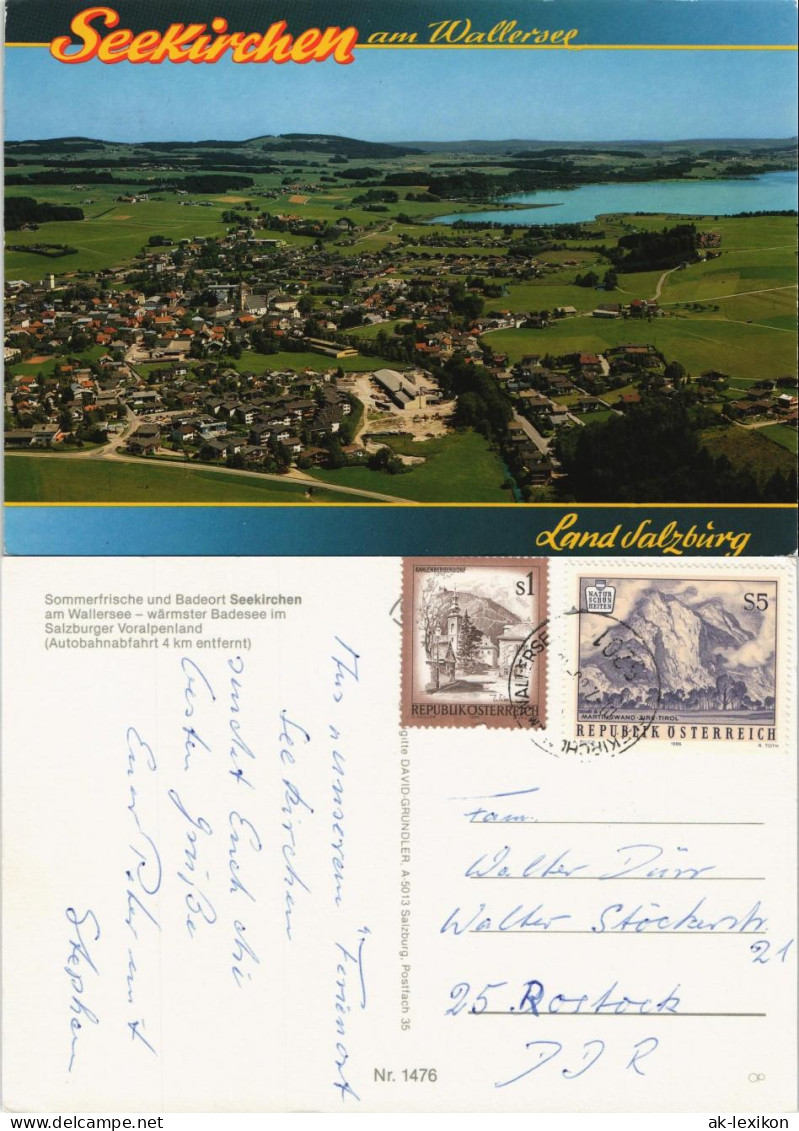 Seekirchen am Wallersee
Land Salzburg
Sommerfrische und Badeort Seekirchen
am Wallersee – wärmster Badesee im
Salzburger Voralpenland
(Autobahnabfahrt 4 km entfernt)
Aus unserem "Ferienort
Seekirchen
sendet Euch die
besten Grüße
Euer Peter mit
Stephan
gitte DAVID-GRÜNDLER, A-5013 Salzburg, Postfach 35
Nr. 1476
KAHLENBERGERDORF
S1
REPUBLIK ÖSTERREICH
NATUR
SCHÖN
HEITEN
S5
MARTINSWAND · ZIRL · TIROL
REPUBLIK ÖSTERREICH
1986
5201
Fam.
Walter Dürr
Walter Stöckerstr.
21
25 Rostock
DDR
www.ak-ansichtskarten.de
ak-lexikon